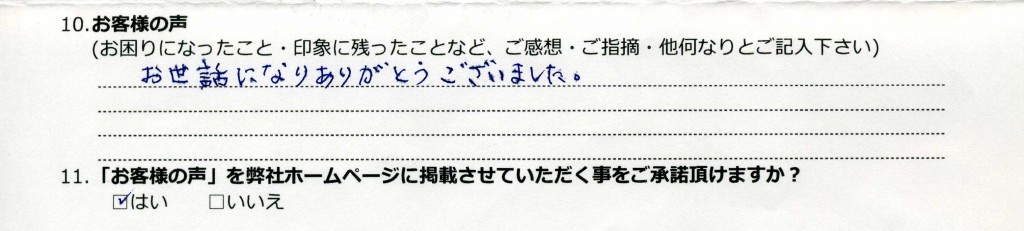 10.お客様の声
(お困りになったこと・印象に残ったことなど、ご感想・ご指摘・他何なりとご記入下さい)
お世話になりありがとうございました。
11.「お客様の声」を弊社ホームページに掲載させていただく事をご承諾頂けますか？
☑はい　□いいえ